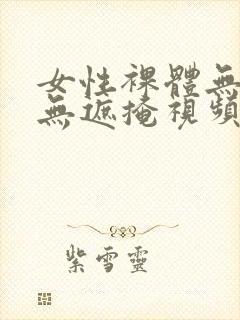 女性裸體無
無遮掩視頻
紫雪靈